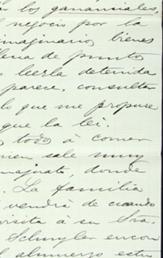 los gananciales
negocio por la
imaginario, bienes
de punto
leerla detenida
parece, consulta
lo que me propuse
que la lei.
todo á comer
sale muy
donde
La familia
vendrá de cuando
visita á su Sra.
Schuyler encon
el almuerzo esta